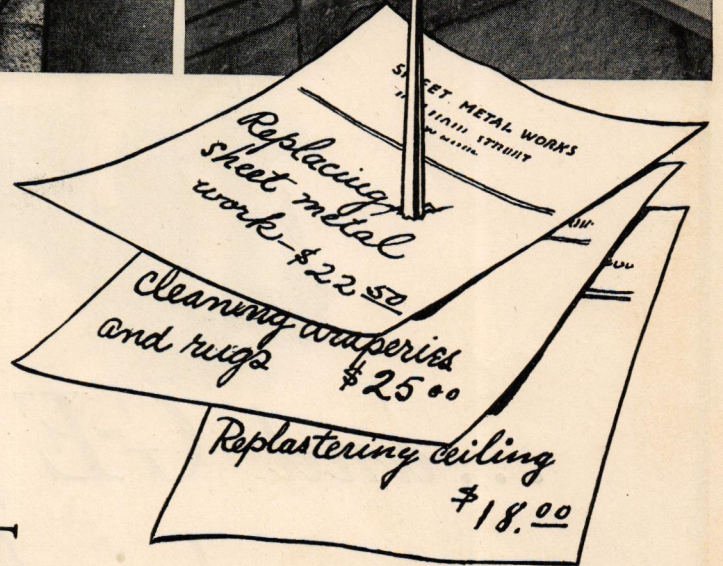 SHEET METAL WORKS
Replacing
sheet metal
work-$22.50
cleaning draperies
and rugs
$25.00
Replastering ceiling
$18.00